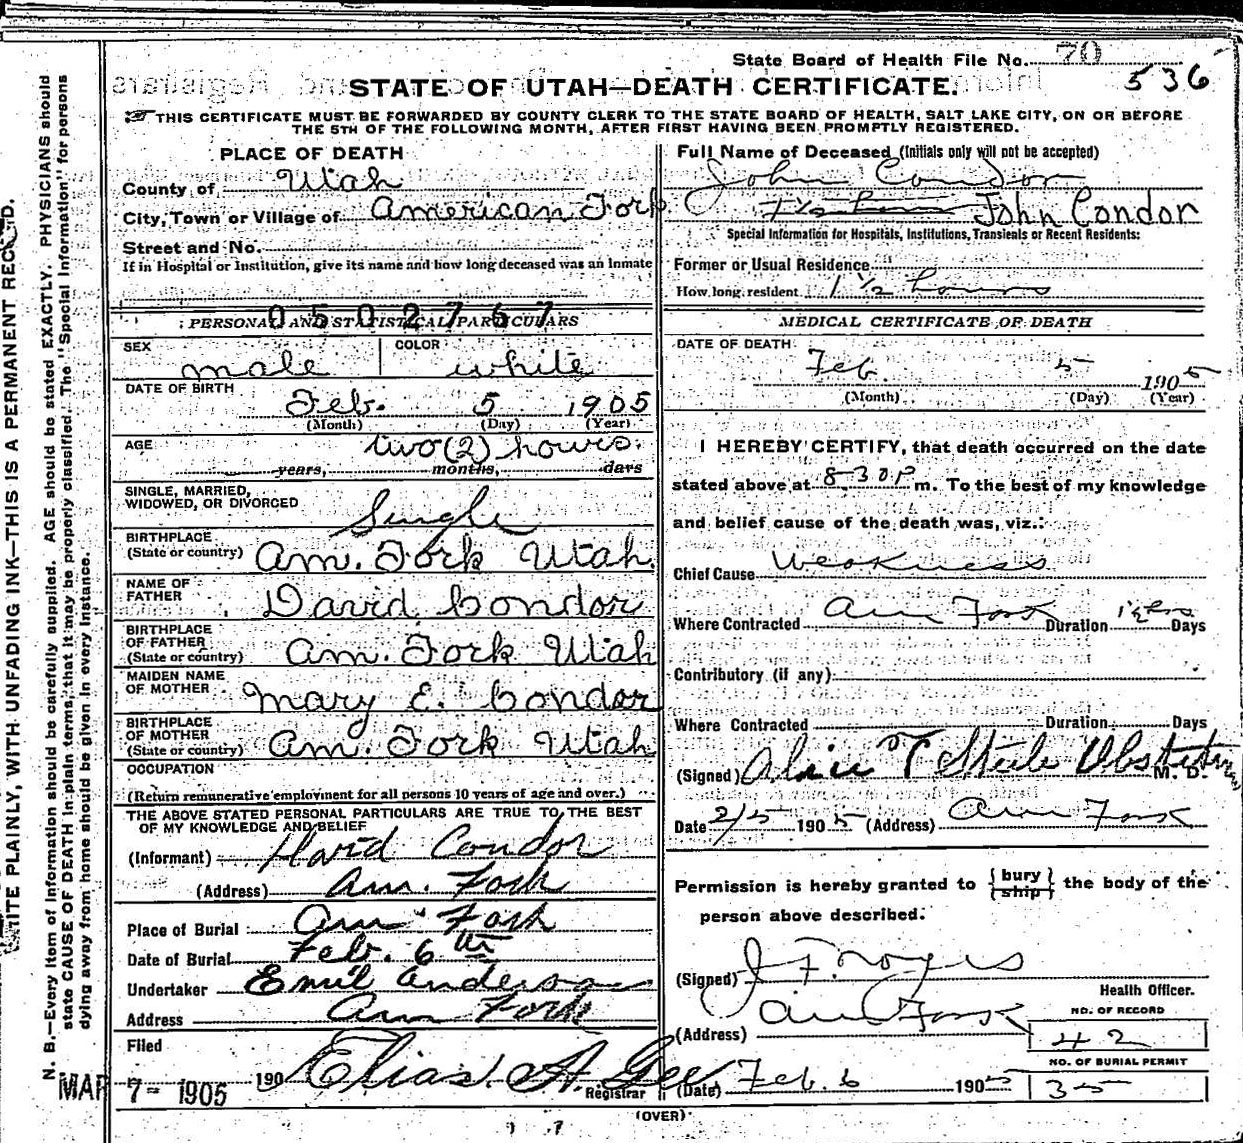 State Board of Health File No. 70
536
STATE OF UTAH—DEATH CERTIFICATE.
THIS CERTIFICATE MUST BE FORWARDED BY COUNTY CLERK TO THE STATE BOARD OF HEALTH, SALT LAKE CITY, ON OR BEFORE
THE 5TH OF THE FOLLOWING MONTH, AFTER FIRST HAVING BEEN PROMPTLY REGISTERED.
PLACE OF DEATH
County of Utah
City, Town or Village of American Fork
Street and No.
If in Hospital or Institution, give its name and how long deceased was an Inmate
0502767
PERSONAL AND STATISTICAL PARTICULARS
SEX male COLOR white
DATE OF BIRTH Feb. 5 1905
(Month) (Day) (Year)
AGE two (2) hours.
years, months, days
SINGLE, MARRIED,
WIDOWED, OR DIVORCED Single
BIRTHPLACE
(State or country) Am. Fork Utah.
NAME OF
FATHER David Condor
BIRTHPLACE
OF FATHER
(State or country) Am. Fork Utah
MAIDEN NAME
OF MOTHER Mary E. Condor
BIRTHPLACE
OF MOTHER
(State or country) Am. Fork Utah
OCCUPATION
(Return remunerative employment for all persons 10 years of age and over.)
THE ABOVE STATED PERSONAL PARTICULARS ARE TRUE TO THE BEST
OF MY KNOWLEDGE AND BELIEF
(Informant) David Condor
(Address) Am. Fork
Place of Burial Am Fork
Date of Burial Feb. 6th
Undertaker Emil Anderson
Address Am Fork
Filed
MAR 7- 1905 190 Elias A. Gee
Registrar
Full Name of Deceased (Initials only will not be accepted)
John Condor
1½ hours John Condor
Special Information for Hospitals, Institutions, Transients or Recent Residents:
Former or Usual Residence
How long resident 1½ hours
MEDICAL CERTIFICATE OF DEATH
DATE OF DEATH
Feb. 5 1905
(Month) (Day) (Year)
I HEREBY CERTIFY, that death occurred on the date
stated above at 8-30 P m. To the best of my knowledge
and belief cause of the death was, viz.:
Chief Cause Weakness
Where Contracted Am Fork Duration 1½ hrs Days
Contributory (if any)
Where Contracted Duration Days
(Signed) Alice T Steele M. D.
Date 2/5 1905 (Address) Am Fork
Permission is hereby granted to { bury ship } the body of the
person above described.
(Signed) J F. Noyes
Health Officer.
(Address) Am Fork
NO. OF RECORD
42
NO. OF BURIAL PERMIT
(Date) Feb. 6 1905 35
(OVER)
N. B.—Every item of information should be carefully supplied. AGE should be stated EXACTLY. PHYSICIANS should
state CAUSE OF DEATH in plain terms, that it may be properly classified. The "Special Information" for persons
dying away from home should be given in every instance.
WRITE PLAINLY, WITH UNFADING INK—THIS IS A PERMANENT RECORD.